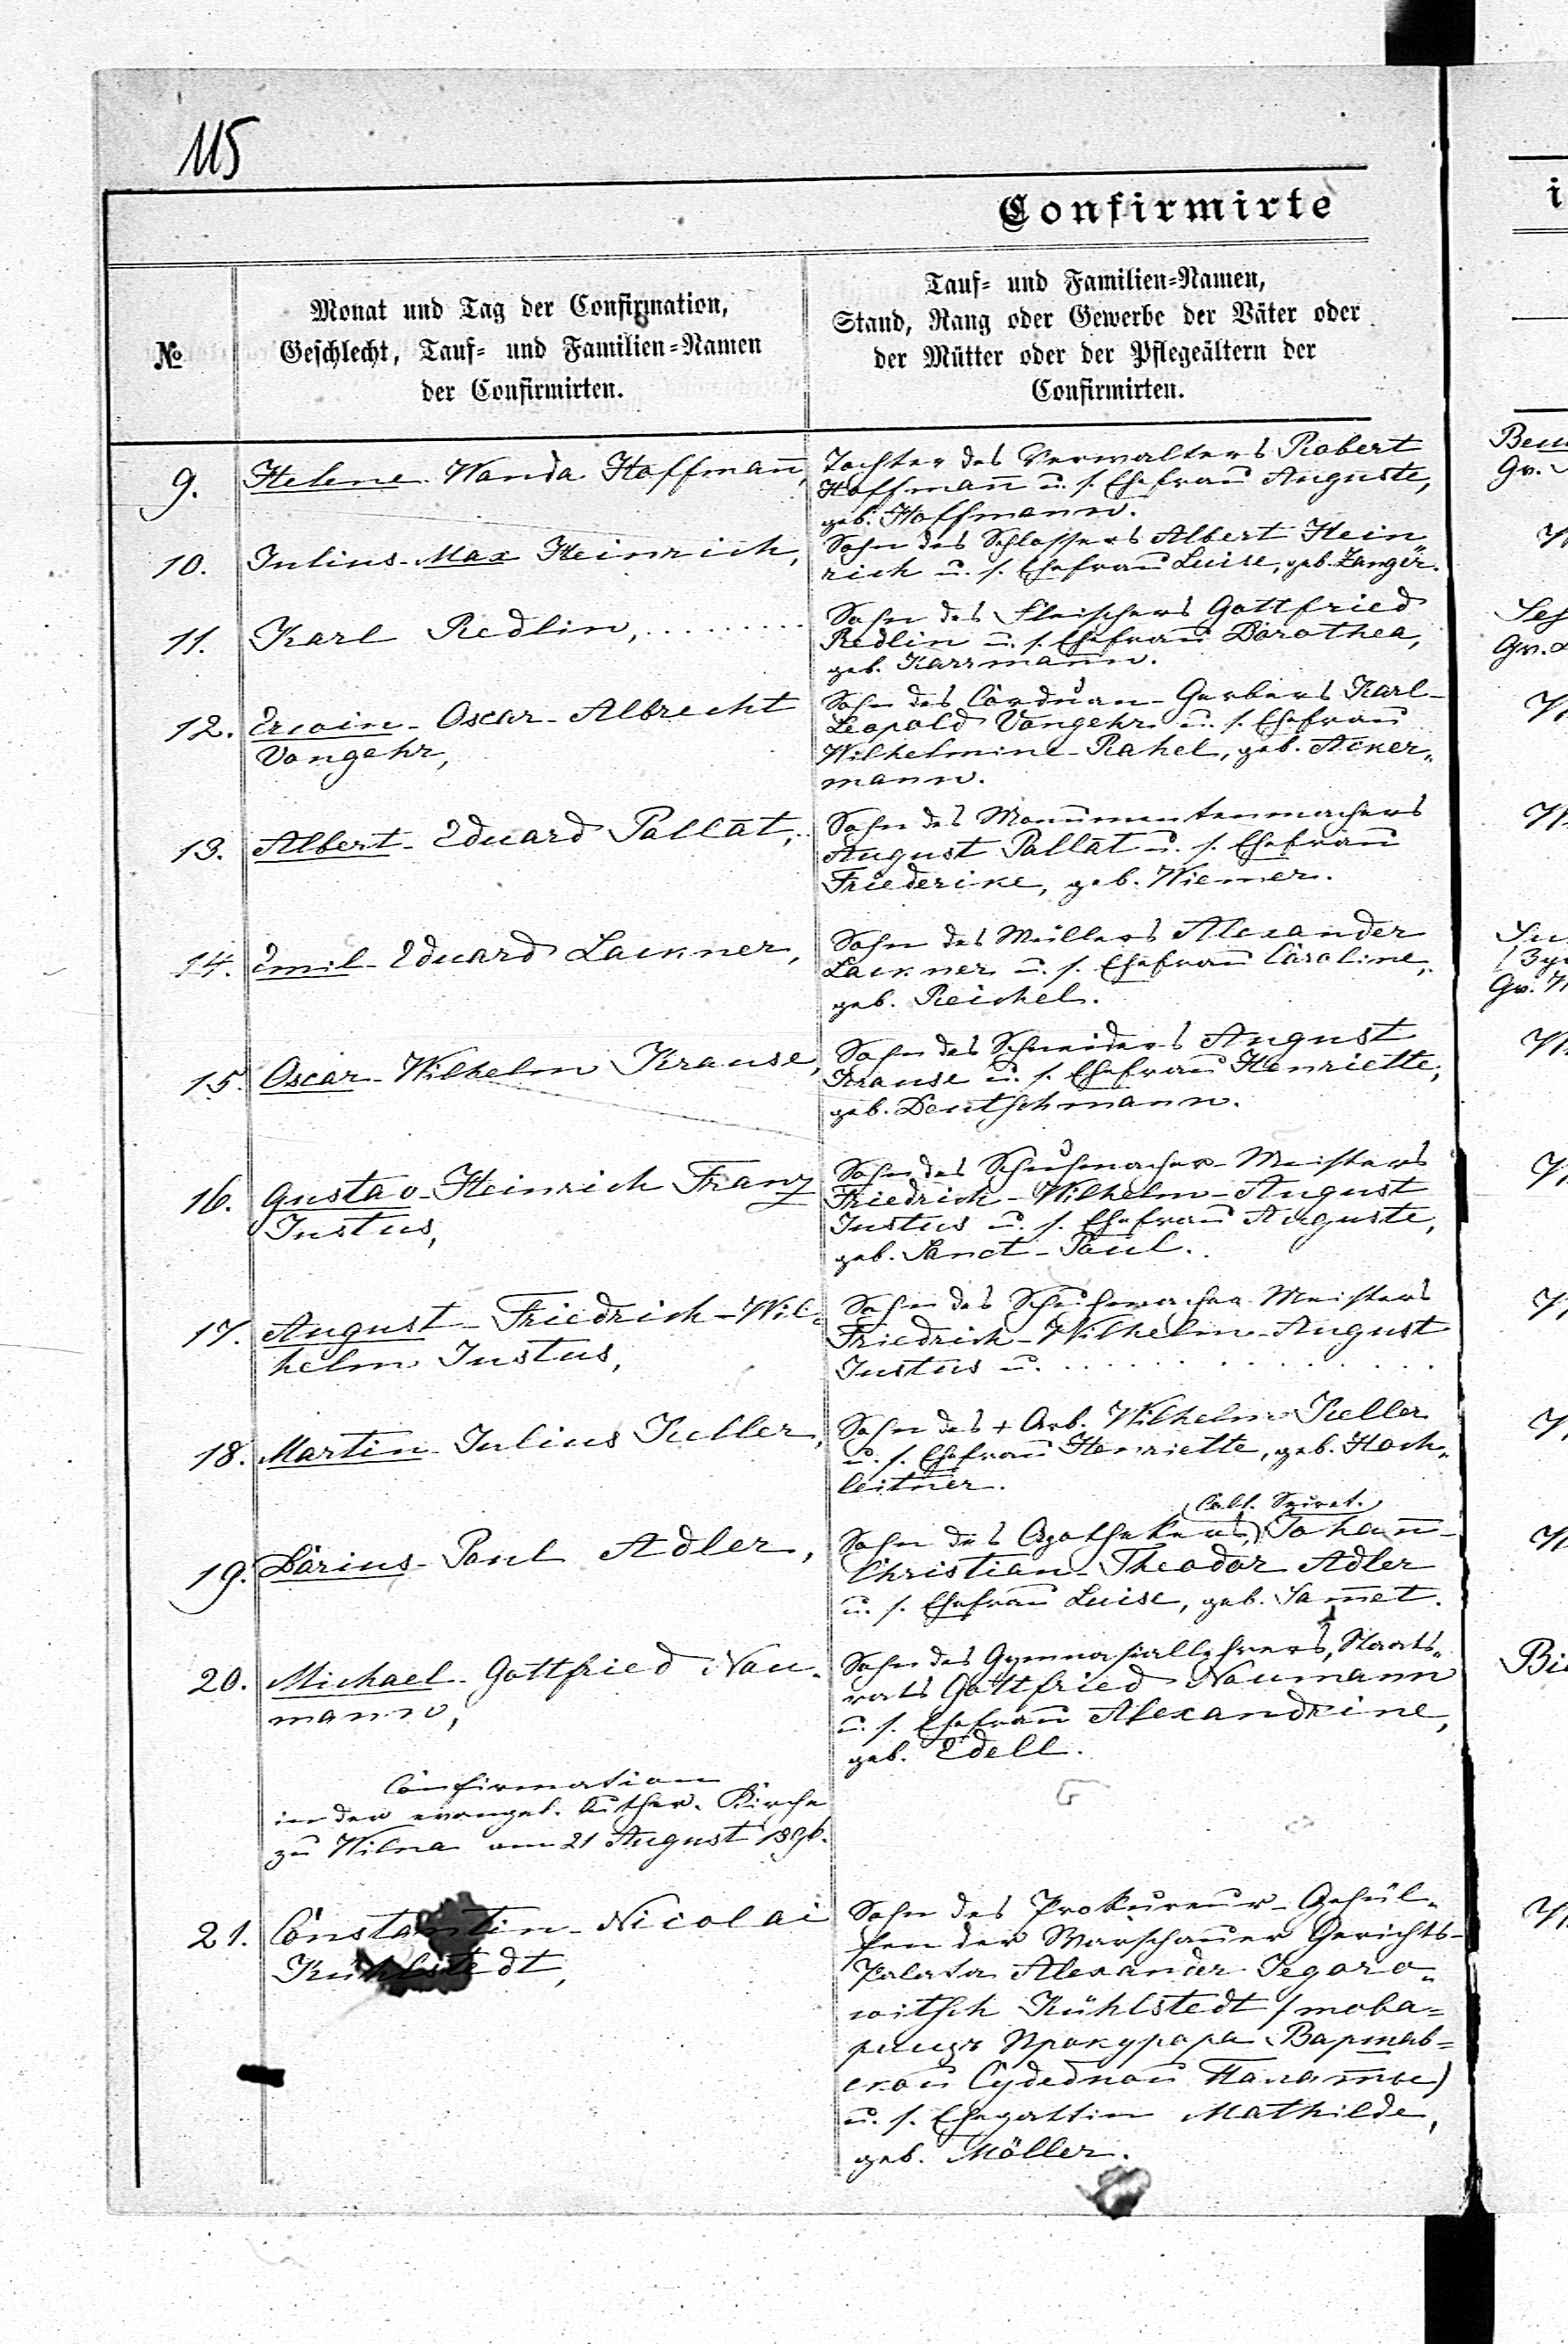 115
Confirmirte
№
Monat und Tag der Confirmation,
Geschlecht, Tauf- und Familien-Namen
der Confirmirten.
Tauf- und Familien-Namen,
Stand, Rang oder Gewerbe der Väter oder
der Mütter oder der Pflegeältern der
Confirmirten.
9. Helene Wanda Hoffmañ,
Tochter des Verwalters Robert
Hoffmañ u. s. Ehefrau Auguste,
geb. Hoffmann.
10. Julius-Max Heinrich,
Sohn des Schlossers Albert Hein„
rich u. s. Ehefrau Luise, geb.
11. Karl Redlin, .........
Sohn des Fleischers Gottfried
Redlin u. s. Ehefrau Dorothea,
geb. Karrmann.
12. Erwin-Oscar-Albrecht
Vongehr,
Sohn des Corduan-Gerbers Karl-
Leopold Vongehr u. s. Ehefrau
Wilhelmine-Rahel, geb. Acker„
mann.
13. Albert-Eduard Pallat,
Sohn des Monumentenmachers
August Pallat u. s. Ehefrau
Friederike, geb. Wiemer.
14. Emil-Eduard Lackner,
Sohn des Müllers Alexander
Lackner u. s. Ehefrau Caroline,
geb. Reichel.
15. Oscar-Wilhelm Krause,
Sohn des Schneiders August
Krause u. s. Ehefrau Henriette,
geb. Deutschmann.
16. Gustav-Heinrich Franz
Justus,
Sohn des Schuhmacher-Meisters
Friedrich-Wilhelm-August
Justus u. s. Ehefrau Auguste,
geb. Sanct-Paul.
17. August-Friedrich-Wil„
helm Justus,
Sohn des Schuhmacher Meisters
Friedrich-Wilhelm-August
Justus u. . . . . . . . . .
18. Martin-Julius Keller,
Sohn des + Arb. Wilhelm Keller
u. s. Ehefrau Henriette, geb. Hoch„
leitner.
19. Darius-Paul Adler,
Coll.
Sohn des Apothekers, Johañ-
Christian-Theodor Adler
u. s. Ehefrau Luise, geb. Sam̄et.
20. Michael-Gottfried Nau„
mann,
Sohn des Gymnasiallehrers, Staats„
rats Gottfried Naumann
u. s. Ehefrau Alexandrine,
geb. Edell.
Confirmation
in der evangel. luther. Kirche
zu Wilna am 21 August 1896.
21. Constantin-Nicolai
Kühlstedt,
Sohn des Prokureur-Gehül„
fen der Warschauer Gerichts-
Palata Alexander Jegoro„
witsch Kühlstedt (това=
рищъ Прокурора Варшав=
ской Судебной Палаты)
u. s. Ehegattin Mathilde,
geb. Möller.